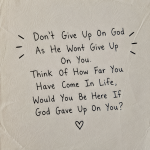 Don't Give Up On God
As He Wont Give Up
On You.
Think Of How Far You
Have Come In Life,
Would You Be Here If
God Gave Up On You?